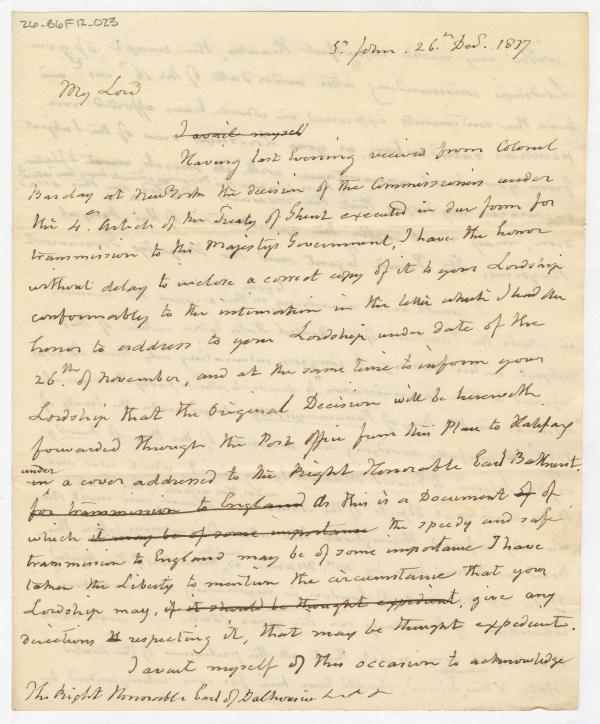 26-B6F12-023
St. John. 26.th Decr. 1817
My Lord
I avail myself
Having last Evening received from Colonel
Barclay at New York the decision of the Commissioners under
the 4.th Article of the Treaty of Ghent executed in due form for
transmission to His Majestys Government, I have the honor
without delay to inclose a correct copy of it to your Lordship
conformably to the intimation in the letter which I had the
honor to address to your Lordship under date of the
26.th of November, and at the same time to inform your
Lordship that the Original Decision will be herewith
forwarded through the Post Office from this Place to Halifax
under
in a cover addressed to the Right Honorable Earl Bathurst.
for transmission to England As this is a Document of of
which it may be of some importance the speedy and safe
transmission to England may be of some importance I have
taken the Liberty to mention the circumstance that your
Lordship may, if it should be thought expedient, give any
directions respecting it, that may be thought expedient.
I avail myself of this occasion to acknowledge
The Right Honorable Earl of Dalhousie